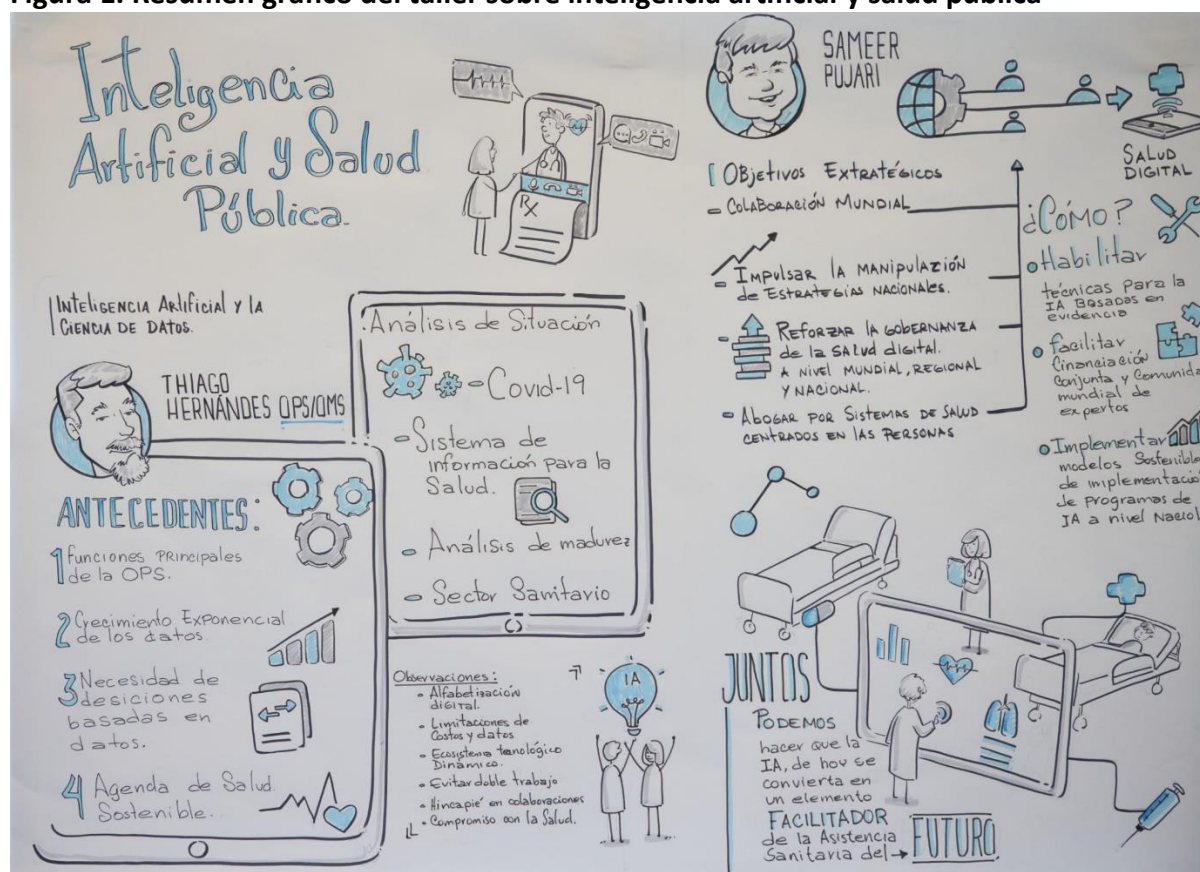 Resumen gráfico del taller sobre inteligencia artificial y salud pública
Inteligencia
Artificial y Salud
Pública.
Rx
INTELIGENCIA Artificial y la
CIENCIA DE DATOS.
THIAGO
HERNÁNDES OPS/OMS
ANTECEDENTES:
1 Funciones Principales
de la OPS.
2 Crecimiento Exponencial
de los datos.
3 Necesidad de
desiciones
basadas en
datos.
4 Agenda de Salud
Sostenible.
Análisis de Situación
- Covid-19
- Sistema de
información para la
Salud.
- Análisis de madurez
- Sector Sanitario
Observaciones:
- Alfabetización
digital.
- Limitaciones de
Costos y datos
- Ecosistema tecnológico
Dinámico.
- Evitar doble trabajo
- Hincapié en colaboraciones
- Compromiso con la Salud.
IA
SAMEER
PUJARI
SALUD
DIGITAL
OBjetivos EXTRATÉGICOS
- COLABORACIÓN MUNDIAL
- IMPULSAR LA MANIPULAZIÓN
de ESTRATEGIAS NACIONALES.
- REFORZAR LA GOBERNANZA
de la SALUD digital.
A NIVEL MUNDIAL, REGIONAL
Y NACIONAL.
- ABOGAR POR SISTEMAS DE SALUD
CENTRADOS EN LAS PERSONAS
¿CÓMO?
Habilitar
técnicas Para la
IA BASADAS en
evidencia
facilitar
financiación
Conjunta y Comunida
mundial de
expertos
Implementar
modelos Sostenible
de implementació
de Programas de
IA a nivel Nacio
JUNTOS
PODEMOS
hacer que la
IA, de hoy se
convierta en
un elemento
FACILITADOR
de la Asistencia
Sanitaria del → FUTURO